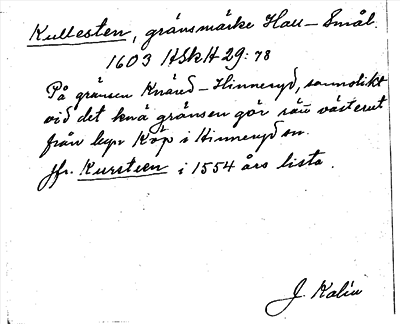 Kullesten, gränsmärke Hall–Smål.
1603 HSkH 29:78
På gränsen Knäred–Hinneryd, sannolikt
vid det knä gränsen gör rätt västerut
från byn Köp i Hinneryd sn.
Jfr. Kursteen i 1554 års lista.
J. Kalén